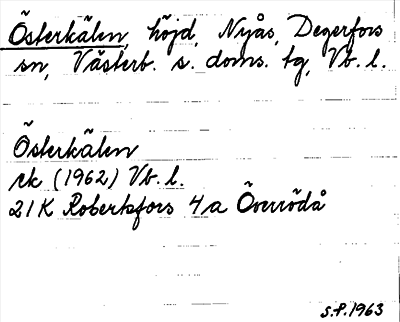 Österkälen, höjd, Nyås, Degerfors
sn, Västerb. s. doms. tg, Vb. l.
Österkälen
rk (1962) Vb. l.
21K Robertsfors 4a Överrödå
S.P. 1963